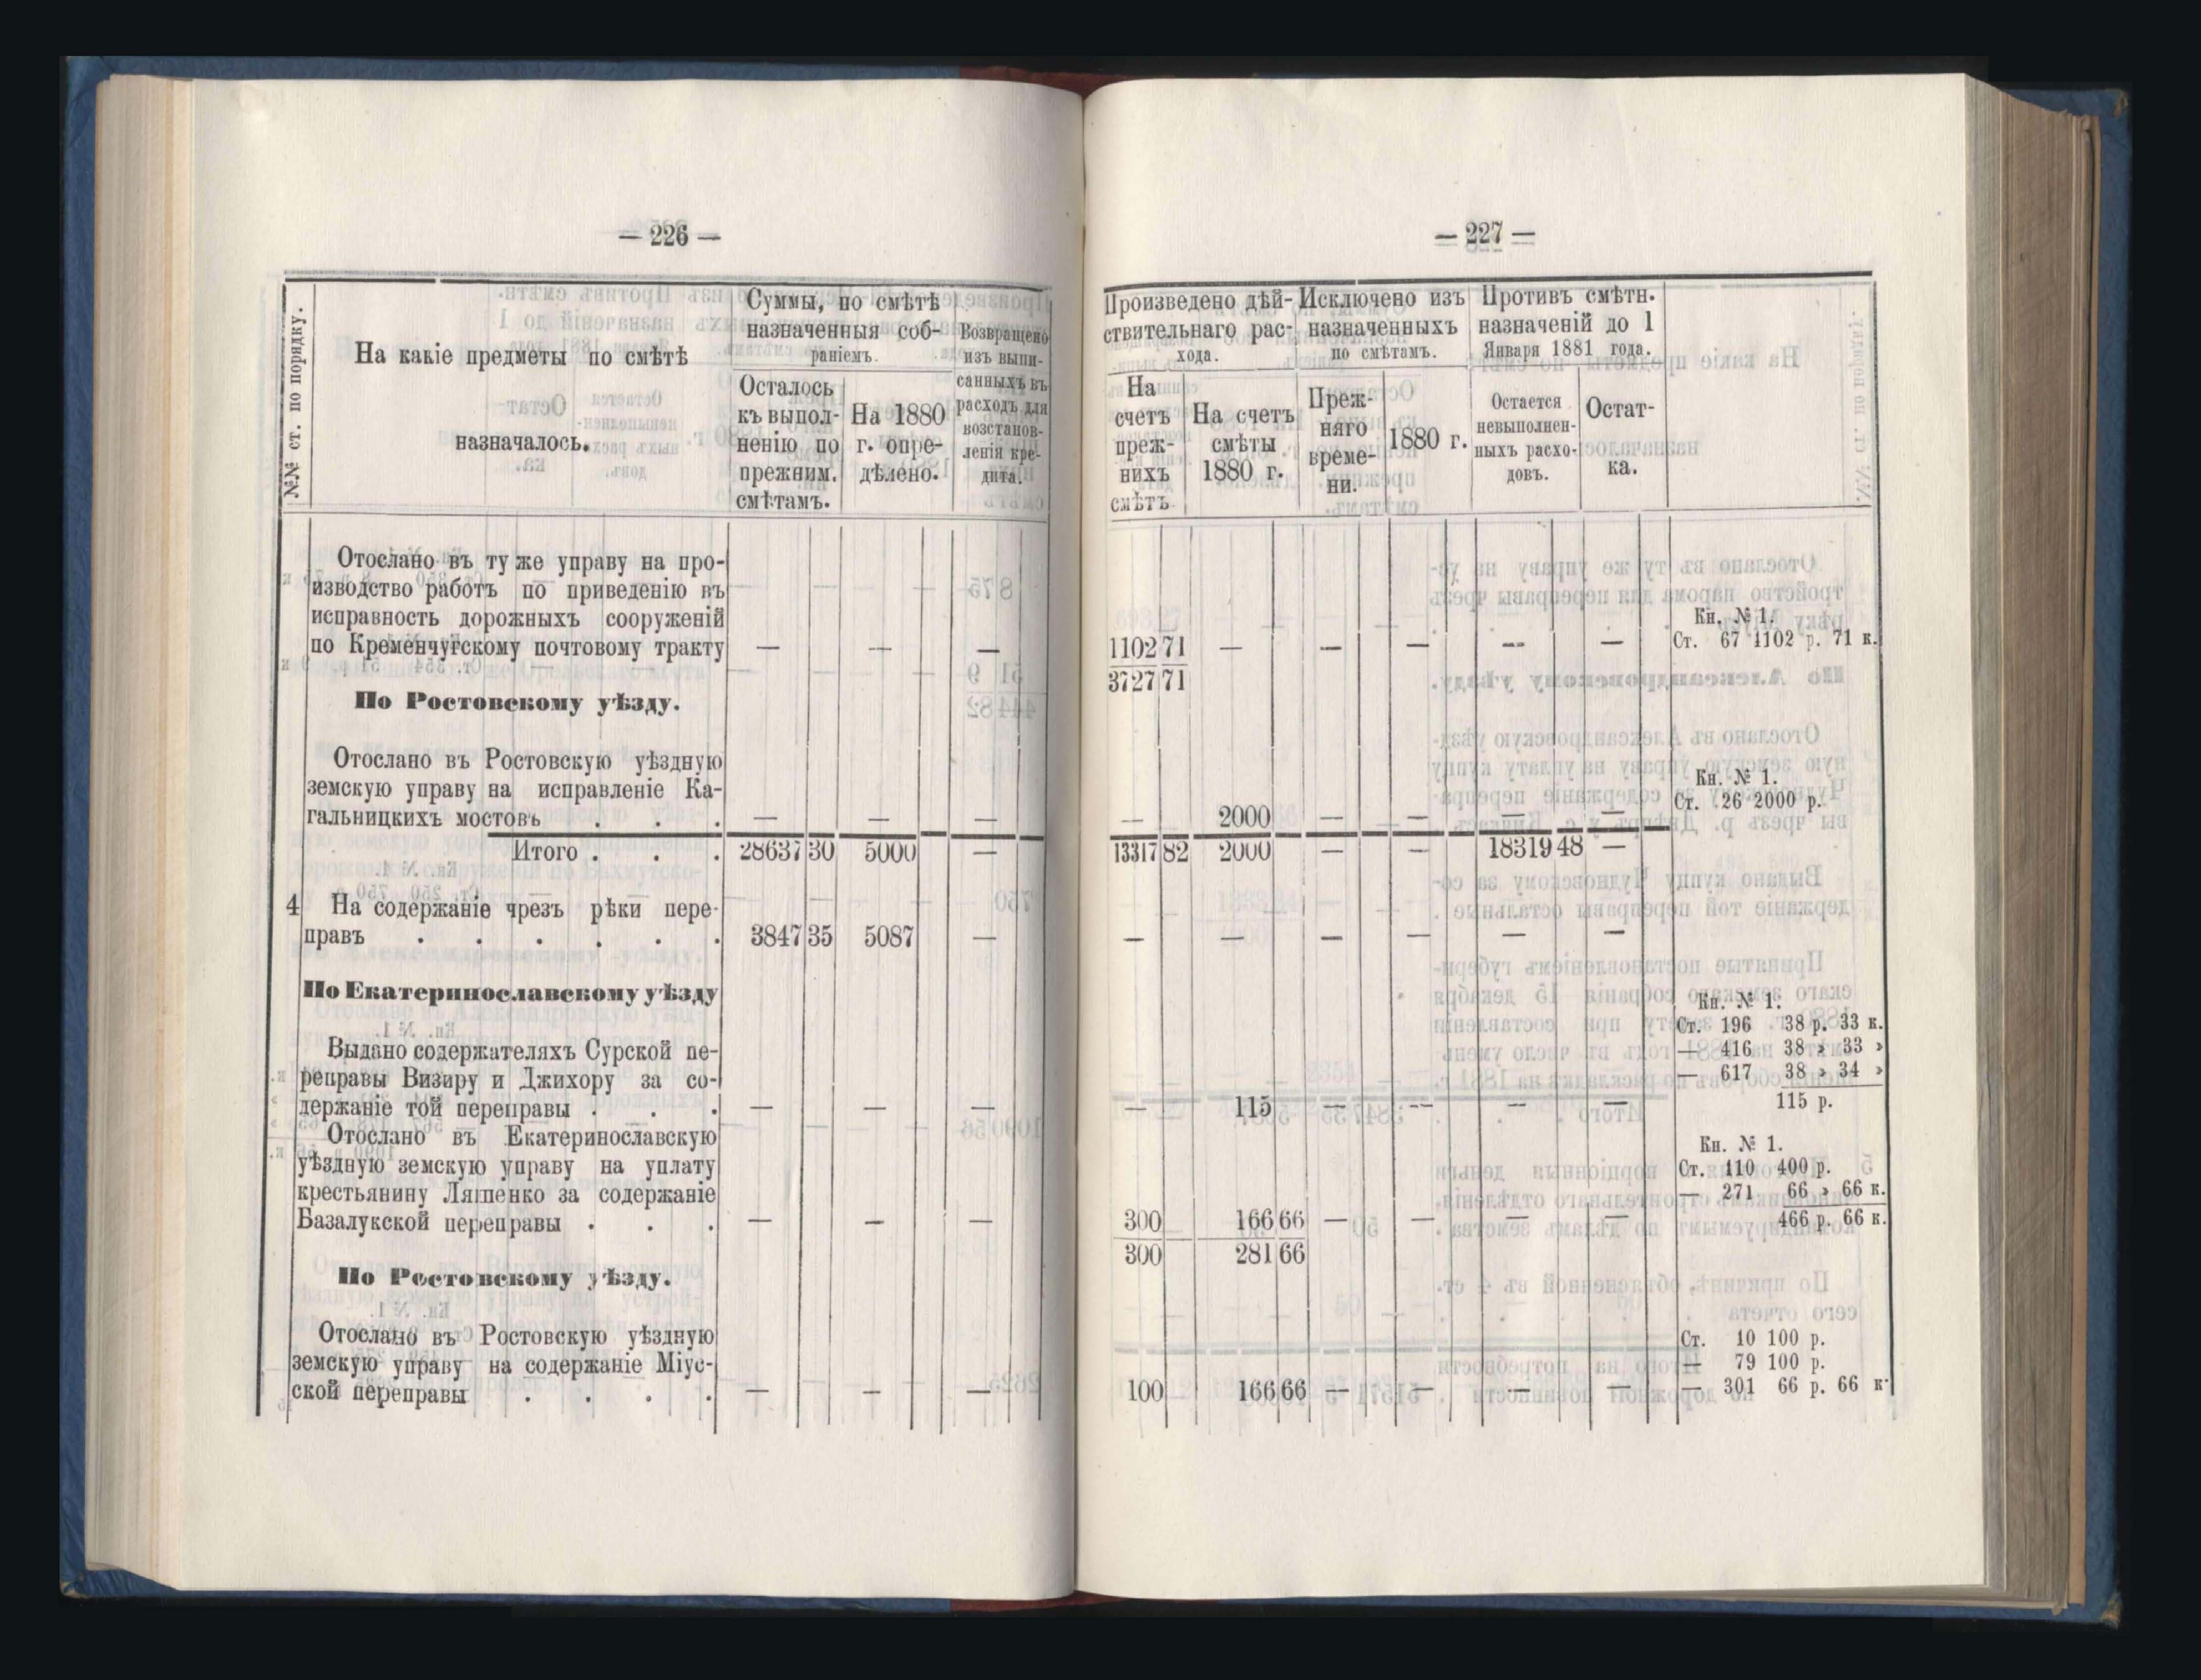 — 226 —
№№ ст. по порядку.
На какіе предметы по смѣтѣ
назначалось.
Суммы, по смѣтѣ
назначенныя соб-
раніемъ.
Осталось
къ выпол-
ненію по
прежним.
смѣтамъ.
На 1880
г. опре-
дѣлено.
Возвращено
изъ выпи-
санныхъ въ
расходъ для
возстанов-
ленія кре-
дита.
Отослано въ ту же управу на про-
изводство работъ по приведенію въ
исправность дорожныхъ сооруженій
по Кременчугскому почтовому тракту — — —
По Ростовскому уѣзду.
Отослано въ Ростовскую уѣздную
земскую управу на исправленіе Ка-
гальницкихъ мостовъ . . . — — —
Итого . . . 28637 30 5000 —
4 На содержаніе чрезъ рѣки пере-
правъ . . . . . . 3847 35 5087 —
По Екатеринославскому уѣзду
Выдано содержателяхъ Сурской пе-
реправы Визиру и Джихору за со-
держаніе той переправы . . . — — —
Отослано въ Екатеринославскую
уѣздную земскую управу на уплату
крестьянину Ляшенко за содержаніе
Базалукской переправы . . . — — —
По Ростовскому уѣзду.
Отослано въ Ростовскую уѣздную
земскую управу на содержаніе Міус-
ской переправы . . . . — — —
— 227 —
Произведено дѣй-
ствительнаго рас-
хода.
На
счетъ
преж-
нихъ
смѣтъ
На счетъ
смѣты
1880 г.
Исключено изъ
назначенныхъ
по смѣтамъ.
Преж-
няго
време-
ни.
1880 г.
Противъ смѣтн.
назначеній до 1
Января 1881 года.
Остается
невыполнен-
ныхъ расхо-
довъ.
Остат-
ка.
Кн. № 1.
1102 71 — — — — — Ст. 67 1102 р. 71 к.
3727 71
Кн. № 1.
Ст. 26 2000 р.
— 2000 — — — —
13317 82 2000 — — 18319 48 —
— — — — — —
Кн. № 1.
Ст. 196 38 р. 33 к.
— 416 38 » 33 »
— 617 38 » 34 »
— 115 — — — — 115 р.
Кн. № 1.
Ст. 110 400 р.
— 271 66 » 66 к.
300 166 66 — — — — 466 р. 66 к.
300 281 66
Ст. 10 100 р.
— 79 100 р.
100 166 66 — — — — — 301 66 р. 66 к.